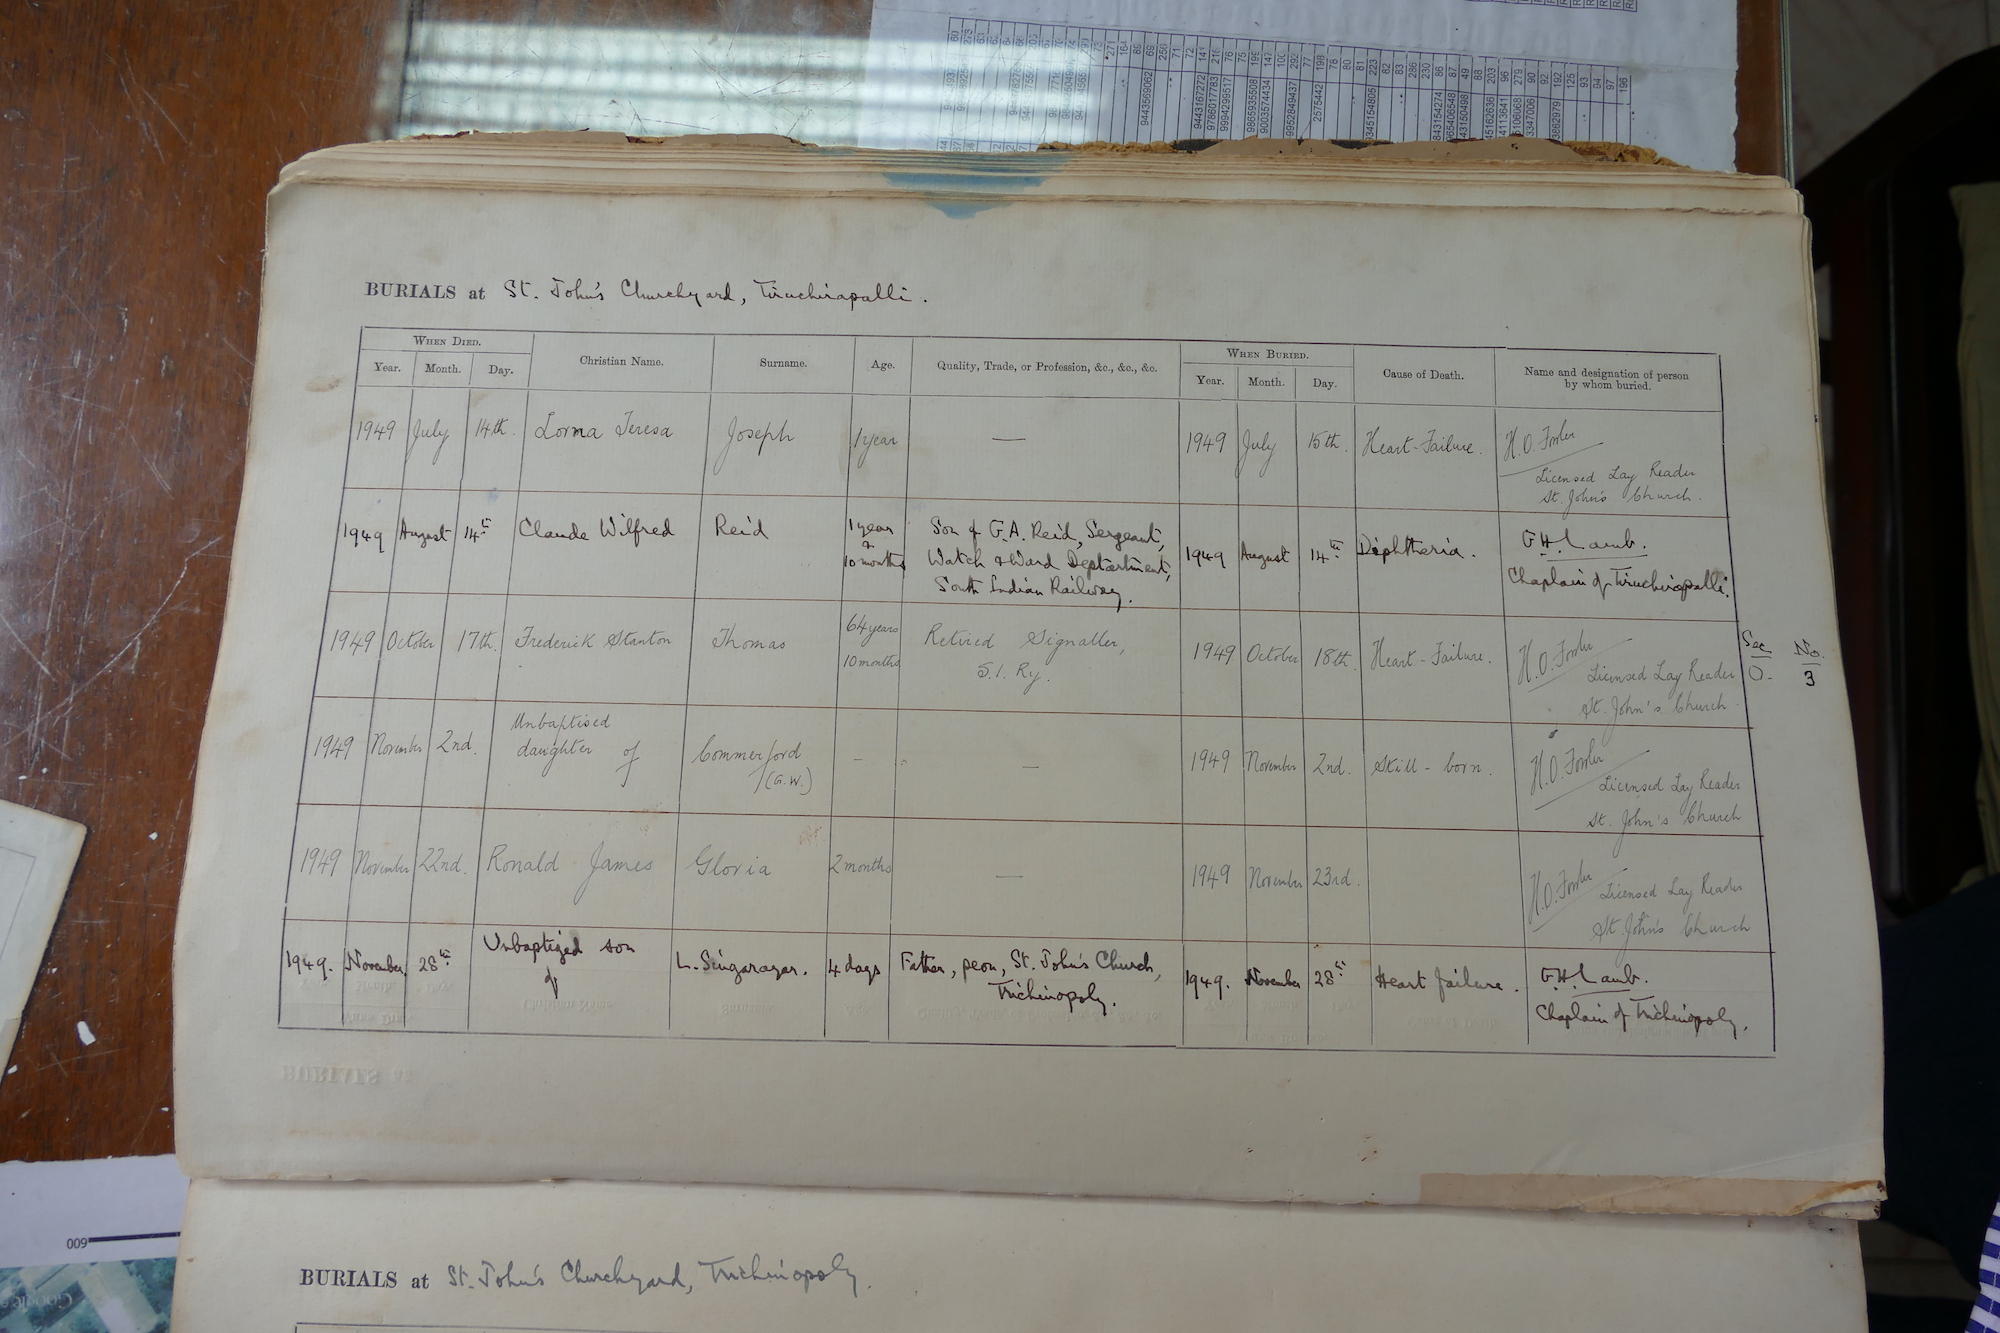 BURIALS at St. John's Churchyard, Tiruchirapalli.
WHEN DIED.
Year. Month. Day.
Christian Name.
Surname.
Age.
Quality, Trade, or Profession, &c., &c., &c.
WHEN BURIED.
Year. Month. Day.
Cause of Death.
Name and designation of person
by whom buried.
1949 July 14th. Lorna Teresa Joseph 1 year — 1949 July 15th. Heart-Failure. H.O. Fowler
Licensed Lay Reader
St. John's Church.
1949 August 14th Claude Wilfred Reid
1 year
&
10 months
Son of G.A. Reid, Sergeant,
Watch & Ward Department,
South Indian Railway.
1949 August 14th Diphtheria.
G.H. Lamb.
Chaplain of Tiruchirapalli.
1949 October 17th. Frederick Stanton Thomas
64 years
10 months
Retired Signaller,
S.I. Ry.
1949 October 18th. Heart-Failure.
H.O. Fowler
Licensed Lay Reader
St. John's Church.
Sec No.
O. 3
1949 November 2nd.
Unbaptised
daughter of
Commerford
(G.W.)
- — 1949 November 2nd. Still-born.
H.O. Fowler
Licensed Lay Reader
St. John's Church
1949 November 22nd. Ronald James Gloria 2 months — 1949 November 23rd.
H.O. Fowler
Licensed Lay Reader
St. John's Church
1949. November 28th
Unbaptized son
of
L. Singarayar. 4 days
Father, peon, St. John's Church,
Trichinopoly.
1949. November 28th Heart failure.
G.H. Lamb.
Chaplain of Trichinopoly.
BURIALS at St. John's Churchyard, Trichinopoly.
009
Google